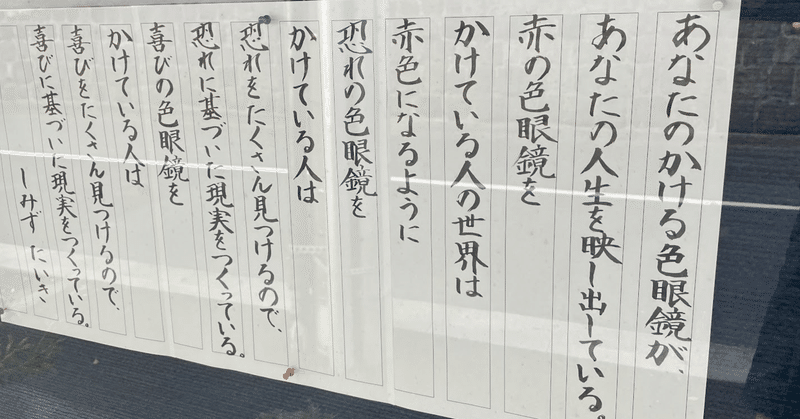 あなたのかける色眼鏡が、
あなたの人生を映し出している。
赤の色眼鏡を
かけている人の世界は
赤色になるように
恐れの色眼鏡を
かけている人は
恐れをたくさん見つけるので、
恐れに基づいた現実をつくっている。
喜びの色眼鏡を
かけている人は
喜びをたくさん見つけるので、
喜びに基づいた現実をつくっている。
しみず たいき